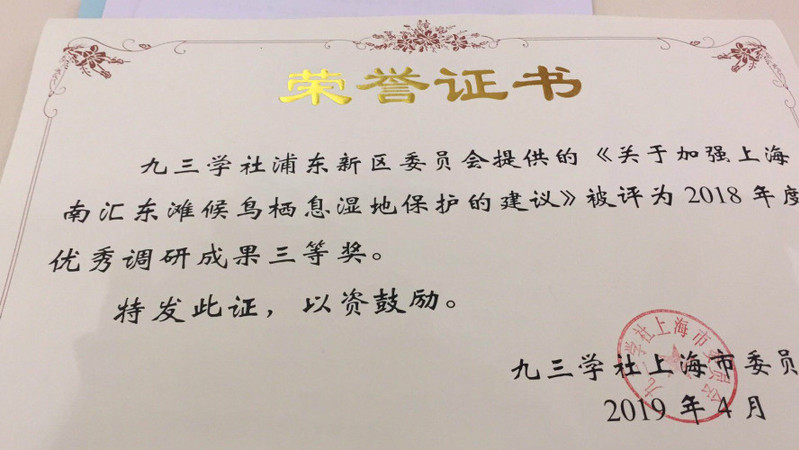 荣誉证书
九三学社浦东新区委员会提供的《关于加强上海
南汇东滩候鸟栖息湿地保护的建议》被评为 2018 年度
优秀调研成果三等奖。
特发此证，以资鼓励。
九三学社上海市委员
2019 年 4 月
九三学社上海市委员会